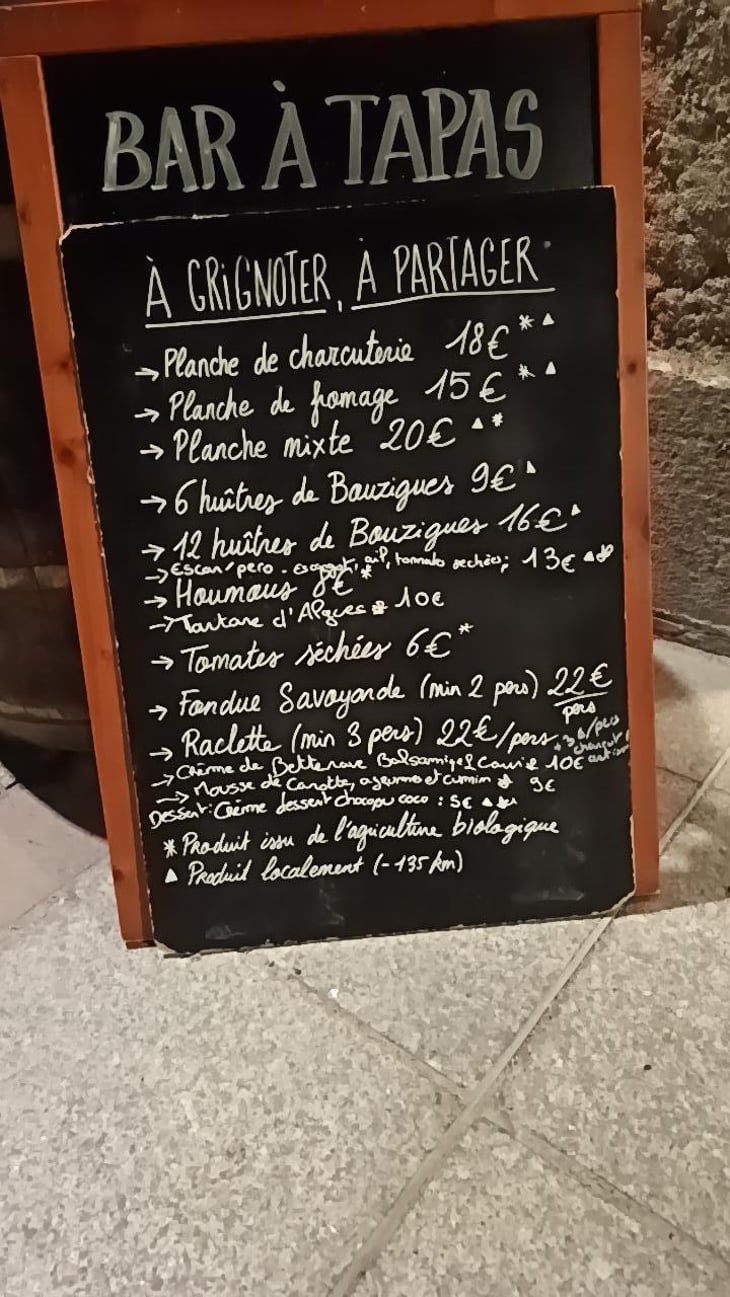 BAR À TAPAS
À GRIGNOTER, À PARTAGER
→ Planche de charcuterie 18€ * ▲
→ Planche de fromage 15€ * ▲
→ Planche mixte 20€ ▲ *
→ 6 huîtres de Bouzigues 9€ ▲
→ 12 huîtres de Bouzigues 16€ ▲
→ Escan'pero - Escargot, ail, tomates sechées; 13€ ▲ *
→ Houmous 8€ *
→ Tartare d'Algues * 10€
→ Tomates séchées 6€ *
→ Fondue Savoyarde (min 2 pers) 22€/pers
→ Raclette (min 3 pers) 22€/pers + 3€/pers
→ Crème de Betterave Balsamique 10€
→ Mousse de Carotte, agrume et cumin * 9€
Dessert: Crème dessert chocolat coco : 5€ ▲ *
* Produit issu de l'agriculture biologique
▲ Produit localement (-135 km)